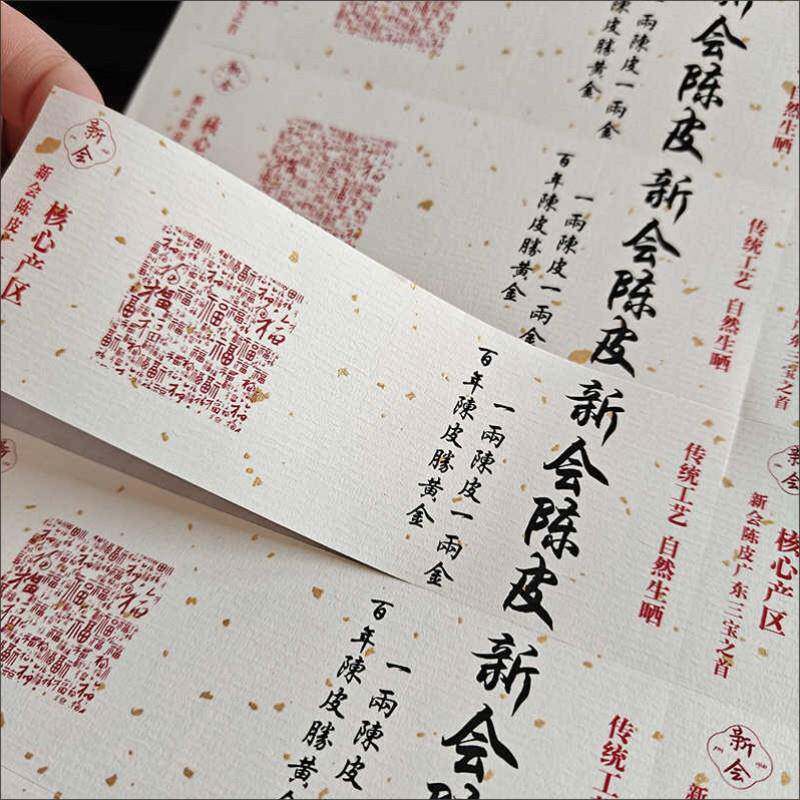 新会陈皮
一兩陳皮一兩金
百年陳皮勝黄金
传统工艺 自然生晒
新会
核心产区
新会陈皮广东三宝之首
新会陈皮
一兩陳皮一兩金
百年陳皮勝黄金
传统工艺 自然生晒
新会
核心产区
新会陈皮广东三宝之首
福
新会陈皮
一兩陳皮一兩金
百年陳皮勝黄金
自然生晒
新会
新会陈皮
一兩陳皮
百年陳皮勝黄
传统工艺
新会